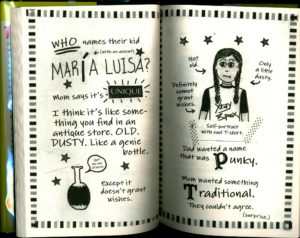 WHO names their kid
(with an accent)
MARÍA LUISA?
Mom says it's UNIQUE
I think it's like some-
thing you find in an
antique store. OLD.
DUSTY. Like a genie
bottle.
Except it
doesn't grant
wishes.
Not old.
Only a
little
dusty.
Definitely
cannot
grant
wishes.
Self-portrait
with cool T-shirt.
Dad wanted a name
that was Punky.
Mom wanted something
Traditional.
They couldn't agree.
(surprise.)